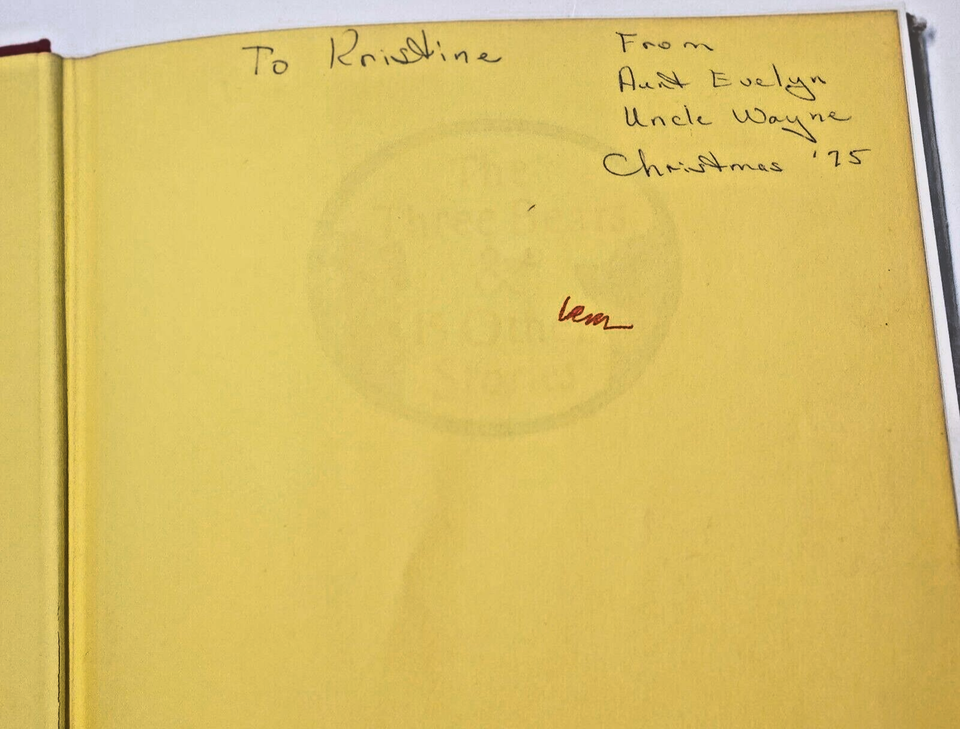 To Kristine
From
Aunt Evelyn
Uncle Wayne
Christmas '75
The
Three Bears
&
15 Other
Stories